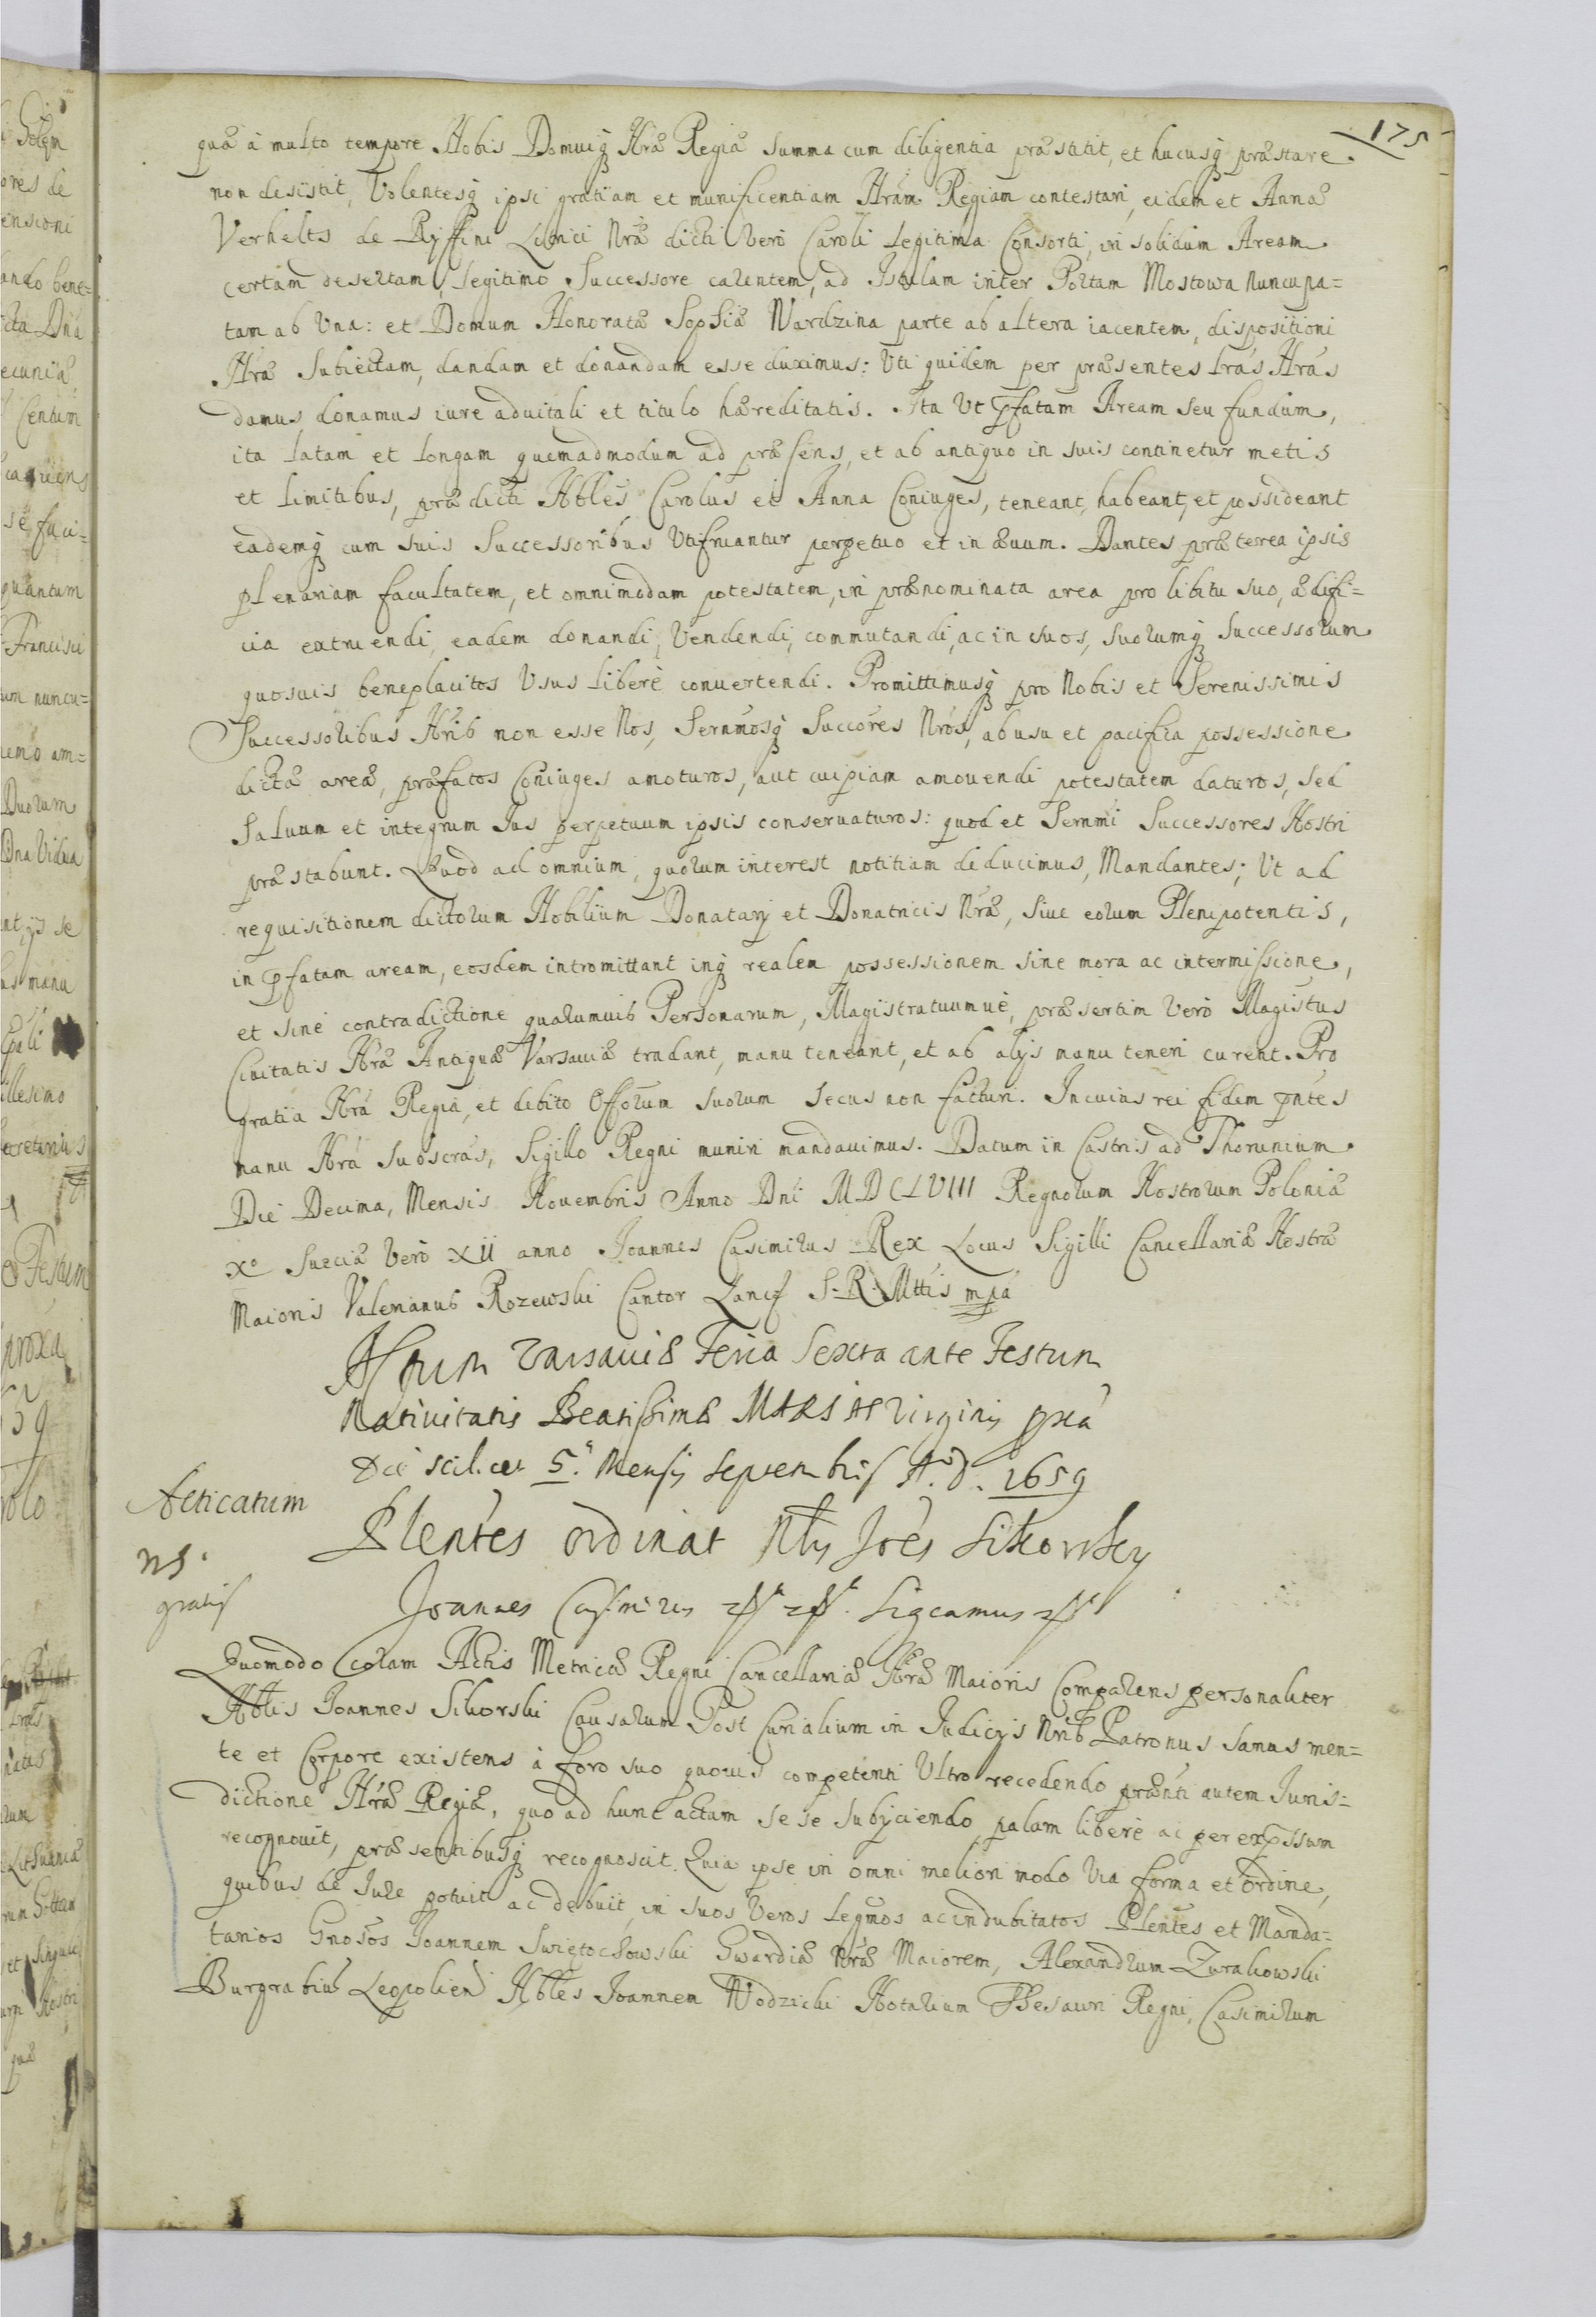 175
quæ à multo tempore Nobis Domuiq Nræ Regiæ summa cum diligentia præstitit, et hucusq præstare
non desistit, Volentesq ipsi gratiam et munificentiam Nram Regiam contestari, eidem et Annæ
Verhelts de Ryffini Lionici Nræ dicti vero Caroli Legitima Consorti, in solidum Aream
certam desertam, legitimo Successore carentem, ad Istulam inter Portam Mostowa nuncupa=
tam ab Una: et Domum Honoratæ Sophiæ Wardzina parte ab altera iacentem, dispositioni
Nræ Subiectam, dandam et donandam esse duximus: Uti quidem per præsentes Lras Nras
damus donamus iure aduitali et titulo hæreditatis. Ita Ut pfatam Aream seu fundum,
ita latam et longam quemadmodum ad præsens, et ab antiquo in suis continetur metis
et limitibus, prædicti Nbles Carolus et Anna Coniuges, teneant, habeant, et possideant
eademq cum suis Successoribus Utifruantur perpetuo et in æuum. Dantes præterea ipsis
plenariam facultatem, et omnimodam potestatem, in prænominata area pro libitu suo, ædifi=
cia extruendi, eadem donandi, Vendendi, commutandi, ac in suos, suorumq Successorum
quosuis beneplacitos Usus libere conuertendi. Promittimusq pro Nobis et Serenissimis
Successoribus Nrib non esse Nos, Sernmosq Succores Nros, ab usu et pacifica possessione
dictæ areæ, præfatos Coniuges amoturos, aut cuipiam amouendi potestatem daturos, sed
Saluum et integrum Ius perpetuum ipsis conseruaturos: quod et Sernmi Successores Nostri
præstabunt. Quod ad omnium, quorum interest notitiam deducimus, Mandantes; Ut ad
requisitionem dictorum Nobilium Donatarij et Donatricis Nræ, siue eorum Plenipotentis,
in pfatam aream, eosdem intromittant inq realem possessionem sine mora ac intermissione,
et sine contradictione quarumuis Personarum, Magistratuumue, præsertim vero Magistus
Ciuitatis Nræ Antiquæ Varsauiæ tradant, manu teneant, et ab alijs manu teneri curent. Pro
gratia Nra Regia, et debito Offorum suorum secus non facturi. In cuius rei fidem pntes
manu Nra Subscras, Sigillo Regni muniri mandauimus. Datum in Castris ad Thorunium
Die Decima, Mensis Nouembris Anno Dni MDCLVIII Regnorum Nostrorum Poloniæ
X° Sueciæ Vero XII anno Joannes Casimirus Rex Locus Sigilli Cancellariæ Nostræ
Maioris Valerianus Rozewski Cantor Lancf S. R. Mttis mpa
Actum Varsauiæ Feria Sexta ante Festum
Natiuitatis Beatissimæ MARIAE Virginis pxa
Die scilicet 5. Mensis Septembris A. D. 1659
Acticatum
Plentes ordinat Nblis Joes Sikorsky
NS.
gratis
Joannes Casimirus
Sigcamus
Quomodo Coram Actis Metricæ Regni Cancellariæ Nræ Maioris Comparens personaliter
Nblis Joannes Sikorski Causarum Post Curialium in Judicijs Nrib Patronus sanus men=
te et Corpore existens à foro suo quouis competenti Ultro recedendo prænti autem Juris=
dictione Nræ Regiæ, quo ad hunc actam se se subijciendo, palam libere ac per expssum
recognouit, præsentibusq recognoscit. Quia ipse in omni meliori modo Via forma et ordine,
quibus de Jure potuit ac debuit, in suos Veros Legmos ac indubitatos Plentes et Manda=
tarios Gnosos Joannem Swiętochowski Gwardiæ Nræ Maiorem, Alexandrum Zurakowski
Burgrabiub Leopolien Nbles Joannem Wodzicki Notarium Thesauri Regni, Casimirum